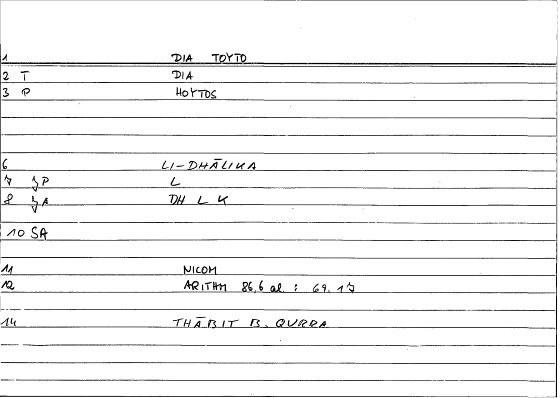 1 DIA TOYTO
2 T DIA
3 P HOYTOS
6 LI-DHĀLIKA
7 ʒP L
8 ʒA DH L K
10 SA
11 NICOM
12 ARITHM 86,6 al. : 69.17
14 THĀBIT B. QURRA